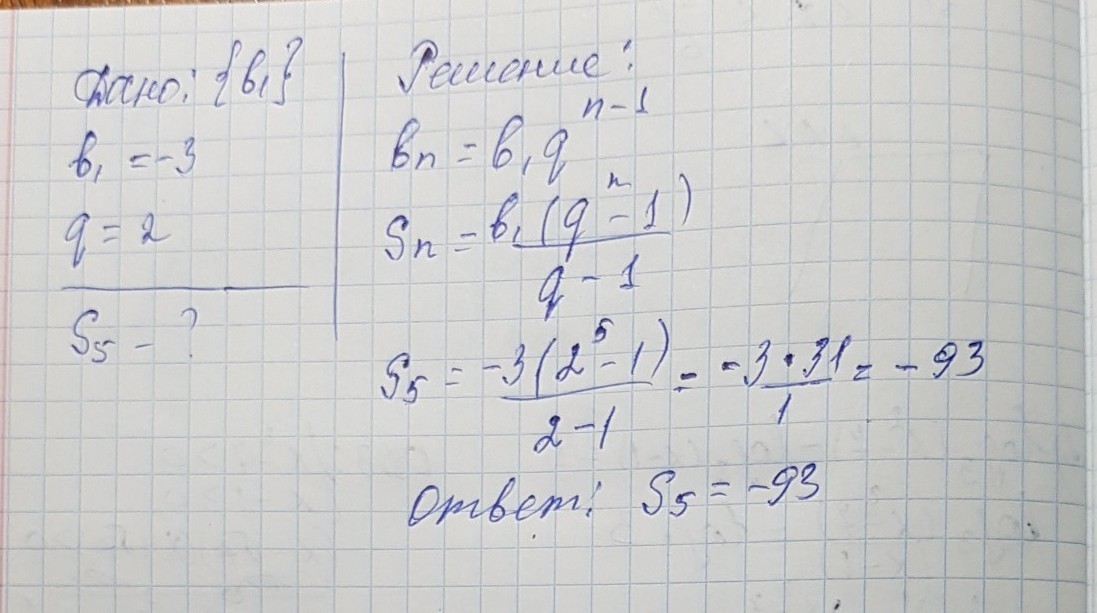 Дано: {b₁}
b₁ = -3
q = 2
S₅ - ?
Решение:
bn = b₁qⁿ⁻¹
Sn = b₁(qⁿ - 1) / q - 1
S₅ = -3(2⁵ - 1) / 2 - 1 = -3 · 31 / 1 = -93
Ответ: S₅ = -93